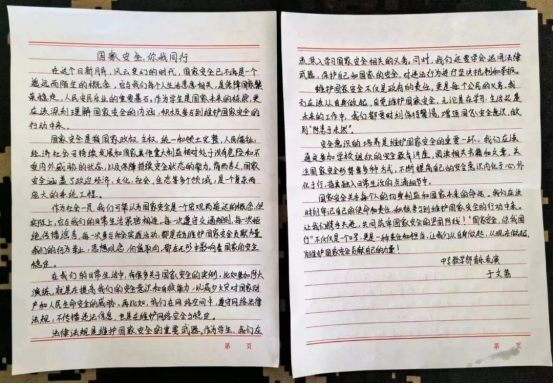 国家安全,你我同行
在这个日新月异,风云变幻的时代,国家安全已不再是一个
遥远而陌生的概念,它与我们每个人生活息息相关,是
人民安居乐业的重要基石。作为学生是国家未来的
应该深刻理解国家安全的内涵,积极参与到维护国家安全的
行动中来。
国家安全是指国家政权、主权、统一和领土完整、人民福祉、
经济社会可持续发展和国家其他重大利益相对处于没有危险和不
受内外威胁的状态,以及保障持续安全状态的能力。简而言之,国家
安全涵盖了政治、经济、文化、社会、生态等多个领域,是一个复杂而
庞大的系统工程。
作为社会一员,我们可能认为国家安全是一个宏观而遥远的概念,但
实际上,它与我们的日常生活紧密相连。每一次遵守交通规则,每一次拒
绝传播谣言,每一次参与安全实践活动,都是在为维护国家安全贡献力量
我们的行为举止,思想观念,价值取向,都在无形中影响着国家的安全
稳定。
在我们的日常生活中,有很多关于国家安全的实例,比如参加防火
演练,就是在提高我们的安全意识和自救能力,以减少火灾对国家财
产和人民生命安全的威胁。再比如,我们在网络空间中,遵守网络法律
法规,不传播违法信息,也是在维护网络安全与稳定。
法律法规是维护国家安全的重要武器,作为学生,我们应
第 页
该深入学习国家安全相关的义务。同时,我们还要学会运用法律
武器,保护自己和国家的安全,对违法行为进行坚决抵制和举报。
维护国家安全不仅是政府的责任,更是每个公民的义务,我
们应该从自身做起,自觉维护国家安全。无论是在学习、生活还是
未来的工作中,我们都要时刻保持警惕,增强国家安全意识,做
到“防患于未然”。
安全意识的培养是维护国家安全的重要一环,我们应该
通过参加学校组织的安全教育讲座,阅读相关书籍和文章,关
注国家安全形势等多种方式,不断提高自己的安全意识内化于心,外
化于行,落实融入日常生活的点滴细节中。
国家安全关系每个人的切身利益和国家未来的命运,我们应该
时刻牢记自己的使命和责任,积极参与到维护国家安全的行动中来。
让我们携手共进,共同筑牢国家安全的坚固防线!“国家安全,你我同
行”不仅仅是一个口号,更是一种责任和担当,让我们从自身做起,从现在做起,
为维护国家安全贡献自己的力量!
于文
第 页